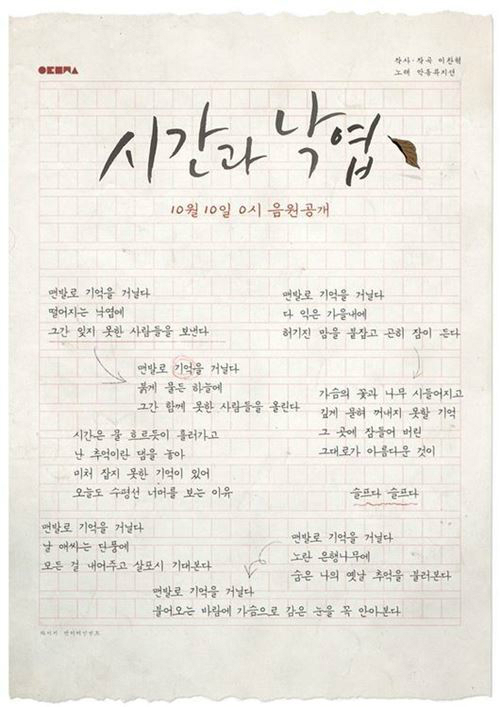 작사·작곡 이찬혁
노래 악동뮤지션
시간과 낙엽
10월 10일 0시 음원공개
맨발로 기억을 거닐다
떨어지는 낙엽에
그간 잊지 못한 사람들을 보낸다
맨발로 기억을 거닐다
붉게 물든 하늘에
그간 함께 못한 사람들을 올린다
시간은 물 흐르듯이 흘러가고
난 추억이란 댐을 놓아
미처 잡지 못한 기억이 있어
오늘도 수평선 너머를 보는 이유
맨발로 기억을 거닐다
날 애싸는 단풍에
모든 걸 내어주고 살포시 기대본다
맨발로 기억을 거닐다
다 익은 가을내에
허기진 맘을 붙잡고 곤히 잠이 든다
가슴의 꽃과 나무 시들어지고
깊게 묻혀 꺼내지 못할 기억
그 곳에 잠들어 버린
그대로가 아름다운 것이
슬프다 슬프다
맨발로 기억을 거닐다
노란 은행나무에
숨은 나의 옛날 추억을 불러본다
맨발로 기억을 거닐다
불어오는 바람에 가슴으로 감은 눈을 꼭 안아본다